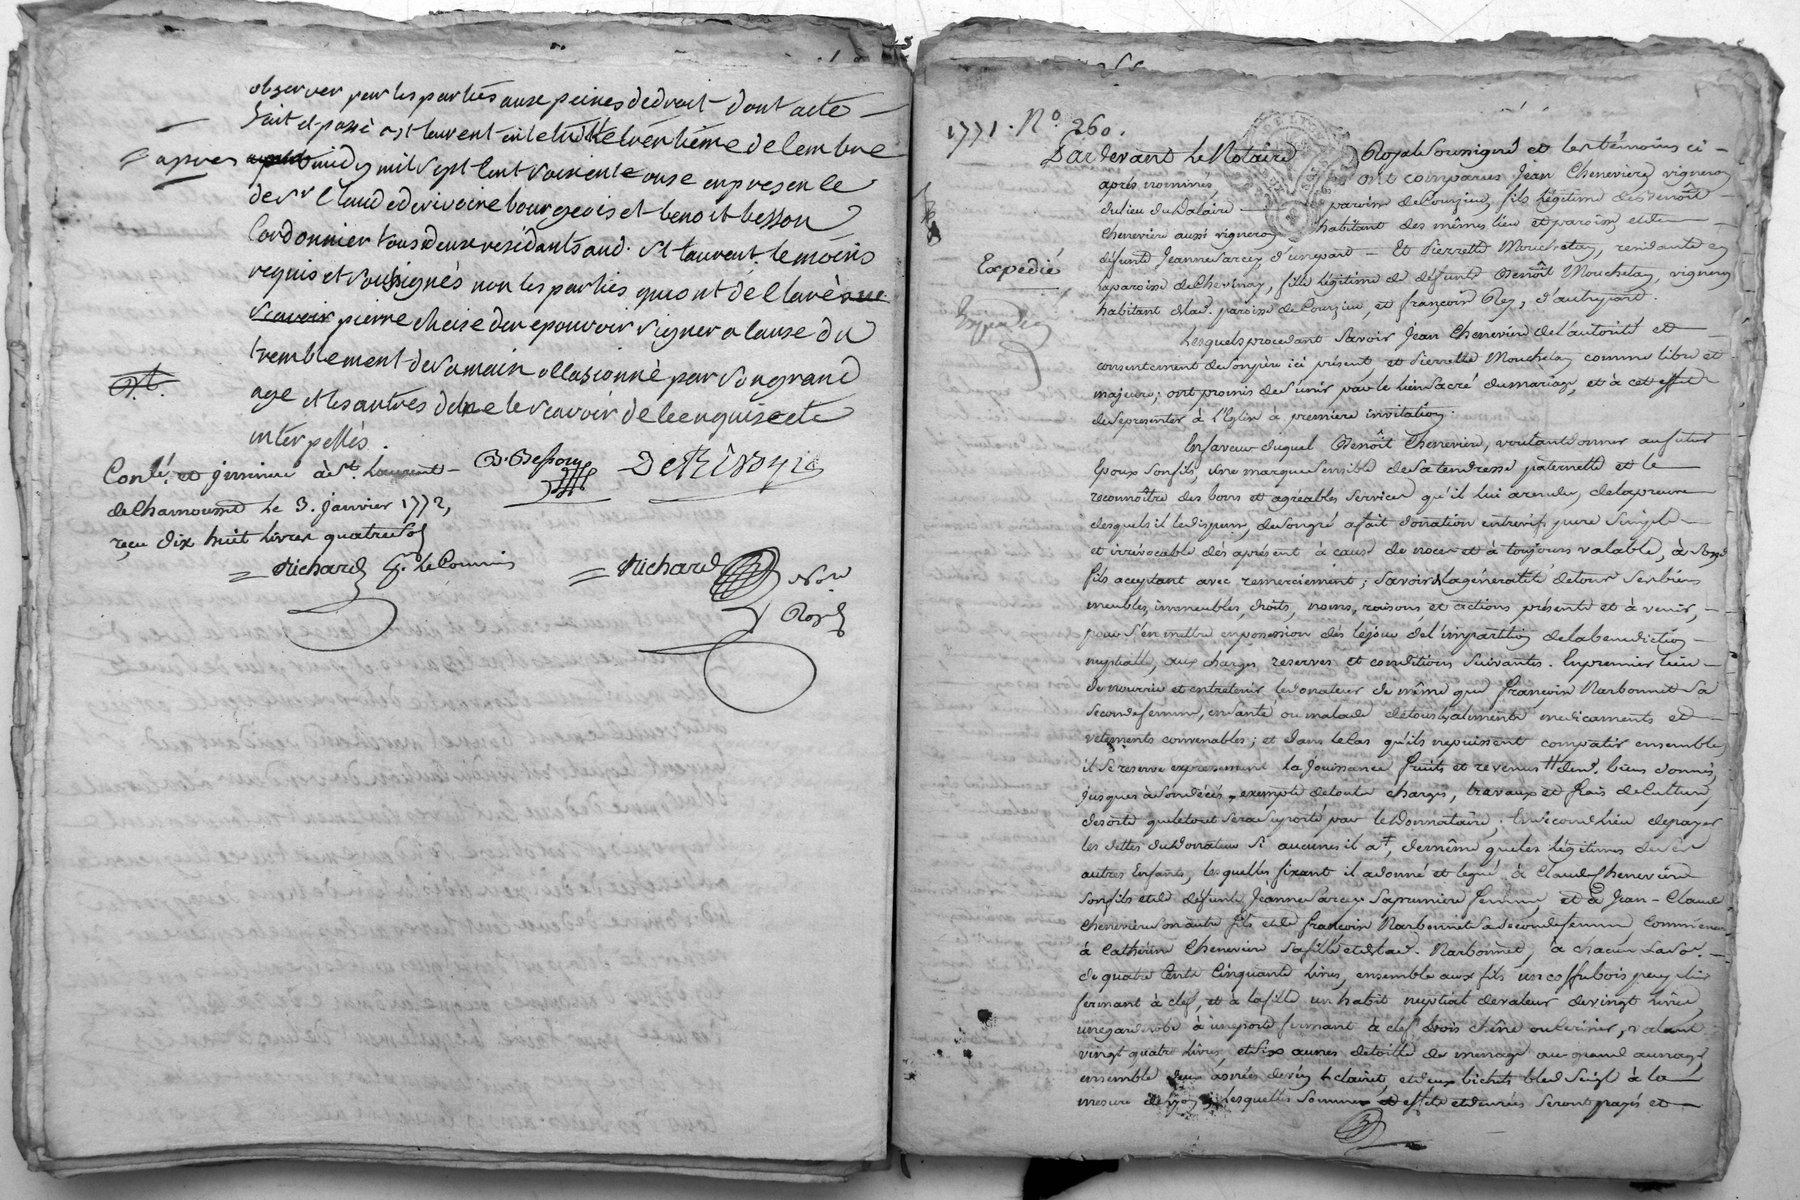 observer par les parties aux peines de droit dont acte
fait et passé a st laurent en letude le treizieme decembre
apres midy mil sept cent soixante onze en presence
de Sr Claude derivoire bourgeois et benoit besson
Cordonnier tous deux residants aud. st laurent temoins
requis et soussignés non les parties qui ont déclaré
Scavoir pierre cheise de ne pouvoir signer a cause du
tremblement de sa main occasionné par son grand
age et les autres de ne le scavoir de ce enquis et
interpellés.
B. Besson Derivoyre
Conlé. et insinué à St. Laurent
de Chamousset le 3. janvier 1772,
reçu dix huit livres quatre sols
Richard p. le Commis
Richard Nore
Royal
1771. No. 260.
Pardevant Le Notaire Royal Soussigné et les témoins ci-
après nommés ont comparus Jean Cheneviere vigneron
du lieu du Dalaire paroisse de Courzieu, fils légitime de Benoît
Cheneviere aussi vigneron habitant des mêmes lieu et paroisse et de
défunte Jeanne Sarcey d'une part - Et Pierrette Mouchetay, residante en
la paroisse de Chevinay, fille légitime de défunts Benoît Mouchetay, vigneron
habitant de lad. paroisse de Courzieu, et françoise Rey, d'autre part.
Expedié
Lesquels procedant Savoir Jean Cheneviere de l'autorité et
consentement de son père ici présent et Pierrette Mouchetay comme libre et
majeure; ont promis de s'unir par le lien sacré du mariage, et à cet effet
de se presenter à l'Eglise à premiere invitation.
En faveur duquel Benoît Cheneviere, voulant donner au futur
Epoux son fils, une marque sensible de sa tendresse paternelle et le
reconnoître des bons et agréables services qu'il lui a rendu, de la preuve
desquels il le dispense, de son gré a fait donation entrevifs pure simple
et irrévocable dès aprésent à cause de noces et à toujours valable, à sond.
fils acceptant avec remerciement; savoir de la généralité de tous ses biens
meubles, immeubles, droits, noms, raisons, et actions, présents et à venir,
pour s'en mettre en possession dès le jour de l'impartition de la benediction
nuptialle, aux charges, reserves et conditions suivantes. En premier lieu
de nourrir et entretenir le donateur de même que françoise Narbonnet sa
seconde femme, en santé ou malade de tous alimens medicaments et
vêtements convenables; et dans le cas qu'ils ne puissent compatir ensemble
il se reserve expressément la jouissance fruits et revenus desd. biens donnés,
jusques à son décès, exempte de toutes charges, travaux et frais de culture,
de sorte que le tout sera suporté par le donnataire; En second lieu de payer
les dettes du donateur si aucunes il a, de même que les légitimes de ses
autres Enfants, lesquelles fixant il a donné et legué à Claude Cheneviere
son fils et de défunte Jeanne Sarcey sa premiere femme, et à Jean-Claude
Cheneviere son autre fils et de françoise Narbonnet sa seconde femme comme encore
à Catherine Cheneviere sa fille et de lad. Narbonnet, à chacun la so.e
de quatre Cents Cinquante livres, ensemble aux fils un coffre bois
fermant à clef, et à la fille un habit nuptial de valeur de vingt livres
une garderobe à une porte fermant à clef bois chêne ou cerisier, valant
vingt quatre livres, et six aunes de toille de menage au grand aunage,
ensemble deux asnées de vin clairet, et deux bichets bled Seigle à la
mesure de lyon, Lesquelles sommes et effets et denrées seront payés et